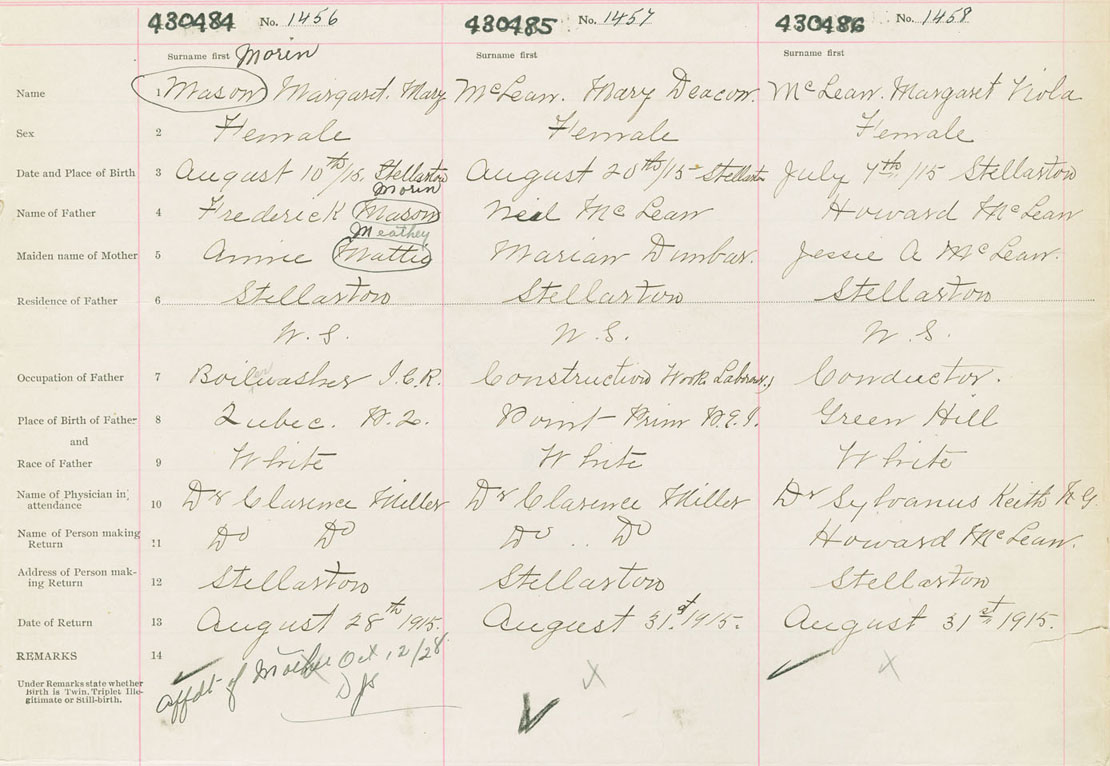 430484 No. 1456 430485 No. 1457 430486 No. 1458
Surname first Morin Surname first Surname first
Name 1 Mason Margaret. Mary McLean. Mary Deacon. McLean. Margaret Viola
Sex 2 Female Female Female
Date and Place of Birth 3 August 10th/15. Stellarton August 20th/15 - Stellarton July 7th/15 Stellarton
Morin
Name of Father 4 Frederick Mason Neil McLean Howard McLean
Meathey
Maiden name of Mother 5 Annie Mattie Marian Dunbar. Jessie A McLean.
Residence of Father 6 Stellarton Stellarton Stellarton
N.S. N.S. N.S.
Occupation of Father 7 Boilwasher I.C.R. Construction Works Laborer Conductor.
Place of Birth of Father 8 Qubec. P.Q. Point Prim P.E.I. Green Hill
and
Race of Father 9 White White White
Name of Physician in attendance 10 Dr Clarence Miller Dr Clarence Miller Dr Sylvanus Keith N.G.
Name of Person making Return 11 Do Do Do .. Do Howard McLean.
Address of Person making Return 12 Stellarton Stellarton Stellarton
Date of Return 13 August 28th 1915. August 31st 1915. August 31st 1915.
REMARKS 14
affdt of Mother Oct 12/28
Under Remarks state whether
Birth is Twin, Triplet Ille-
gitimate or Still-birth.